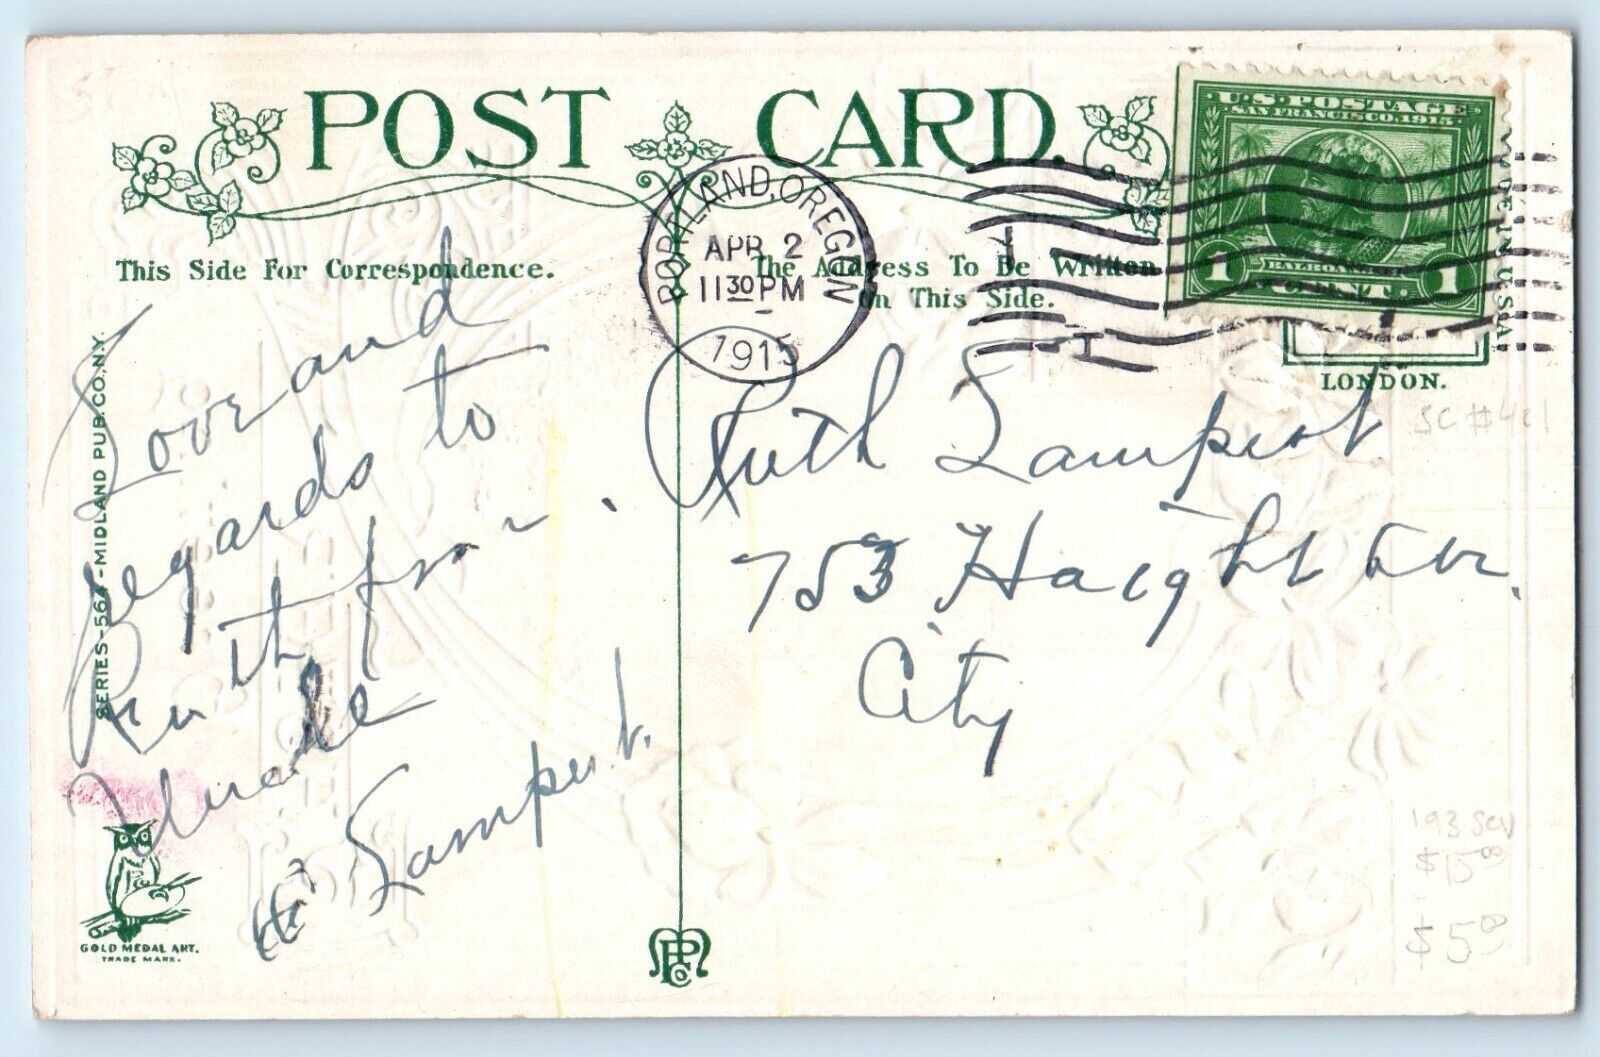 POST CARD.
This Side For Correspondence.
The Address To Be Written
on This Side.
PORTLAND, OREGON
APR 2
11 30 PM
1915
U.S. POSTAGE
SAN FRANCISCO, 1915
BALBOA
1 CENT. 1
IN U.S.A.
LONDON.
SC #401
Love and
Regards to
Ruth from
Uncle
Lampert.
Ruth Lampert
753 Haight Ave.
City
SERIES-564-MIDLAND PUB.CO.N.Y.
GOLD MEDAL ART.
TRADE MARK.
MPCo
$15 00
$5 00